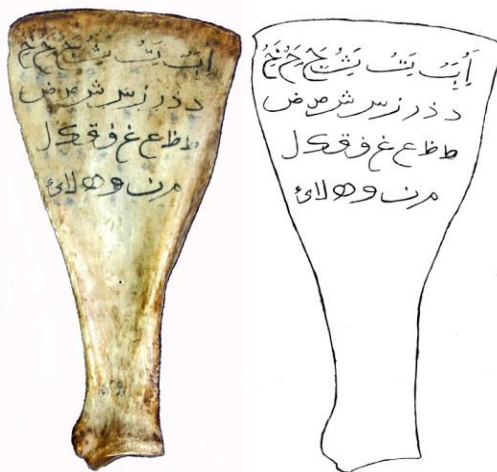 ا ب ت ث ج ح خ
د ذ ر ز س ش ص ض
ط ظ ع غ ف ق ك ل
م ن و ه لا ئ
ا ب ت ث ج ح خ
د ذ ر ز س ش ص ض
ط ظ ع غ ف ق ك ل
م ن و ه لا ئ